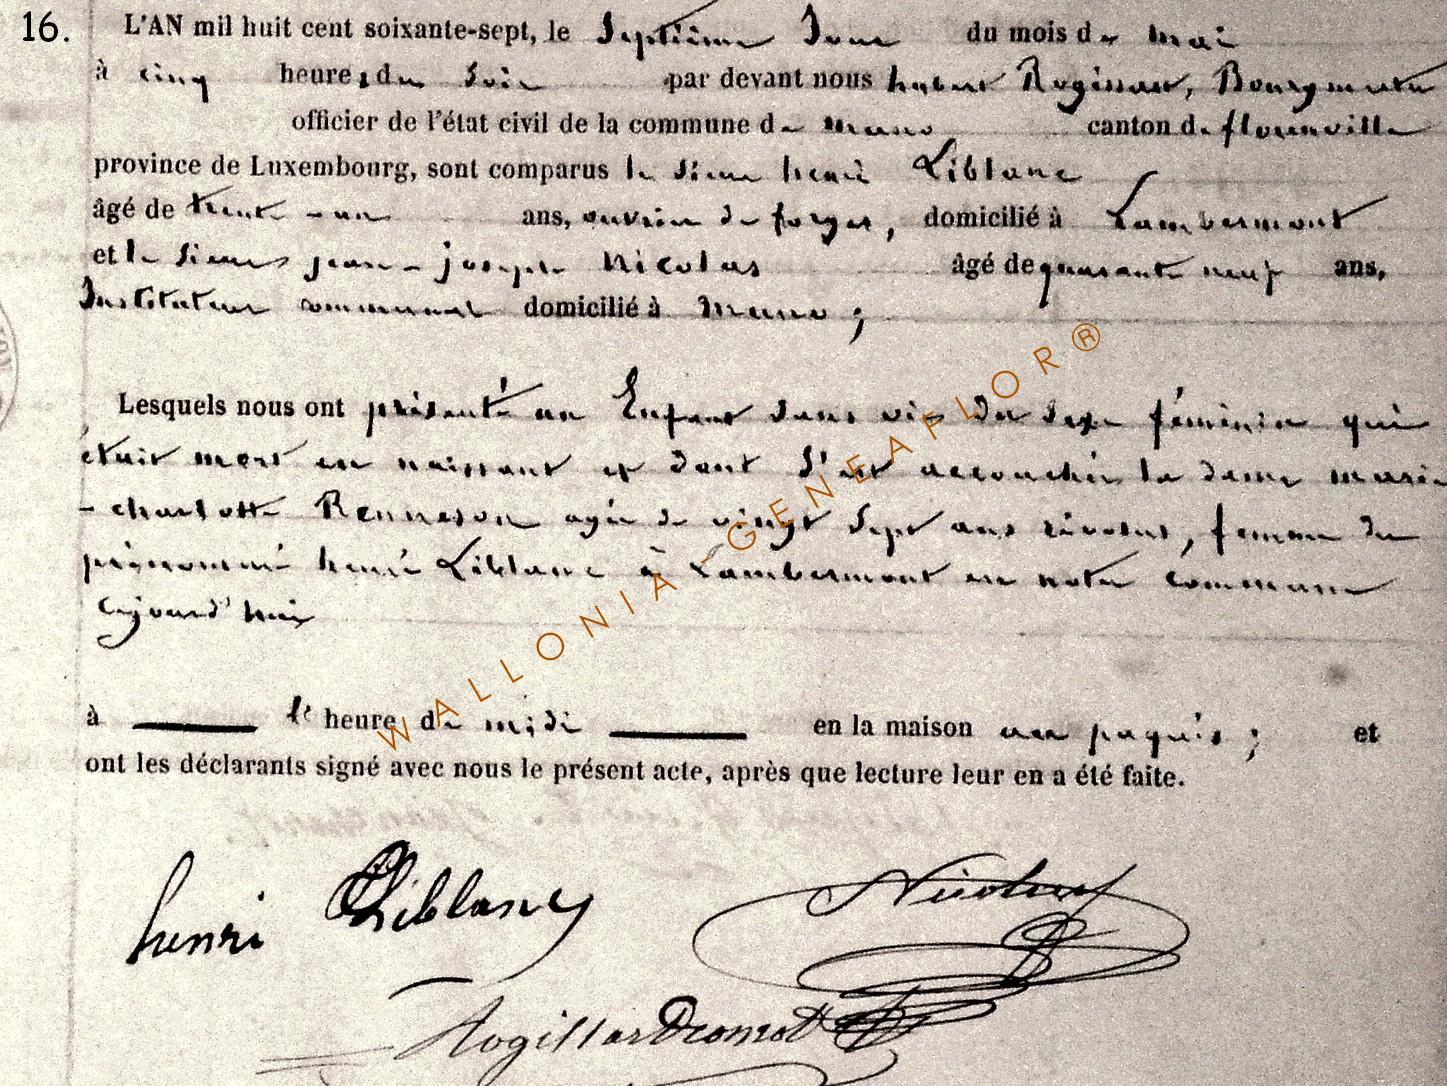 16. L'AN mil huit cent soixante-sept, le Septième Jour du mois de mai
à cinq heures du Soir par devant nous hubert Rogissart, Bourgmestre
officier de l'état civil de la commune de muno canton de florenville
province de Luxembourg, sont comparus le sieur henri Liblanc
âgé de trente-un ans, ouvrier de forges, domicilié à Lambermont
et le Sieurs jean-joseph Nicolas âgé de quarante neuf ans,
Instituteur communal domicilié à Muno ;
Lesquels nous ont présenté un Enfant sans vie du sexe féminin qui
était mort en naissant et dont S'est accouchée la dame marie
-charlotte Renneson agée de vingt Sept ans révolus, femme du
prénommé henri Liblanc à Lambermont en notre commune
ajourd'hui
à heure de midi en la maison au paquis ; et
ont les déclarants signé avec nous le présent acte, après que lecture leur en a été faite.
henri Liblanc Nicolas
WALLONIA-GENEAFLOR®